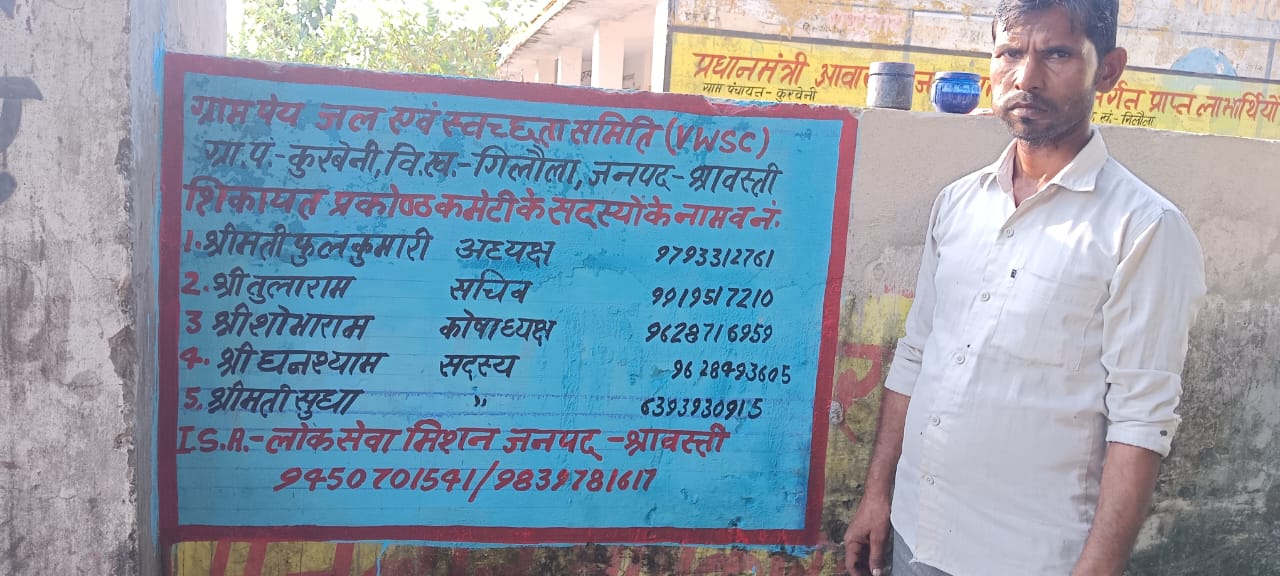 ग्राम पेय जल एवं स्वच्छता समिति (VWSC)
ग्रा.पं.-कुरबेनी, वि.ख.-गिलौला, जनपद-श्रावस्ती
शिकायत प्रकोष्ठ कमेटी के सदस्यों के नाम व नं.
1. श्रीमती फुलकुमारी अध्यक्ष 9793312761
2. श्री तुलाराम सचिव 9919517210
3 श्री शोभाराम कोषाध्यक्ष 9628716959
4. श्री घनश्याम सदस्य 9628493605
5. श्रीमती सुधा " 6393930915
I.S.A.-लोक सेवा मिशन जनपद-श्रावस्ती
9450701541/9839781617
प्रधानमंत्री आवास
र्गत प्राप्त लाभार्थियों
ग्राम पंचायत-कुरवेनी
खं.-गिलौला